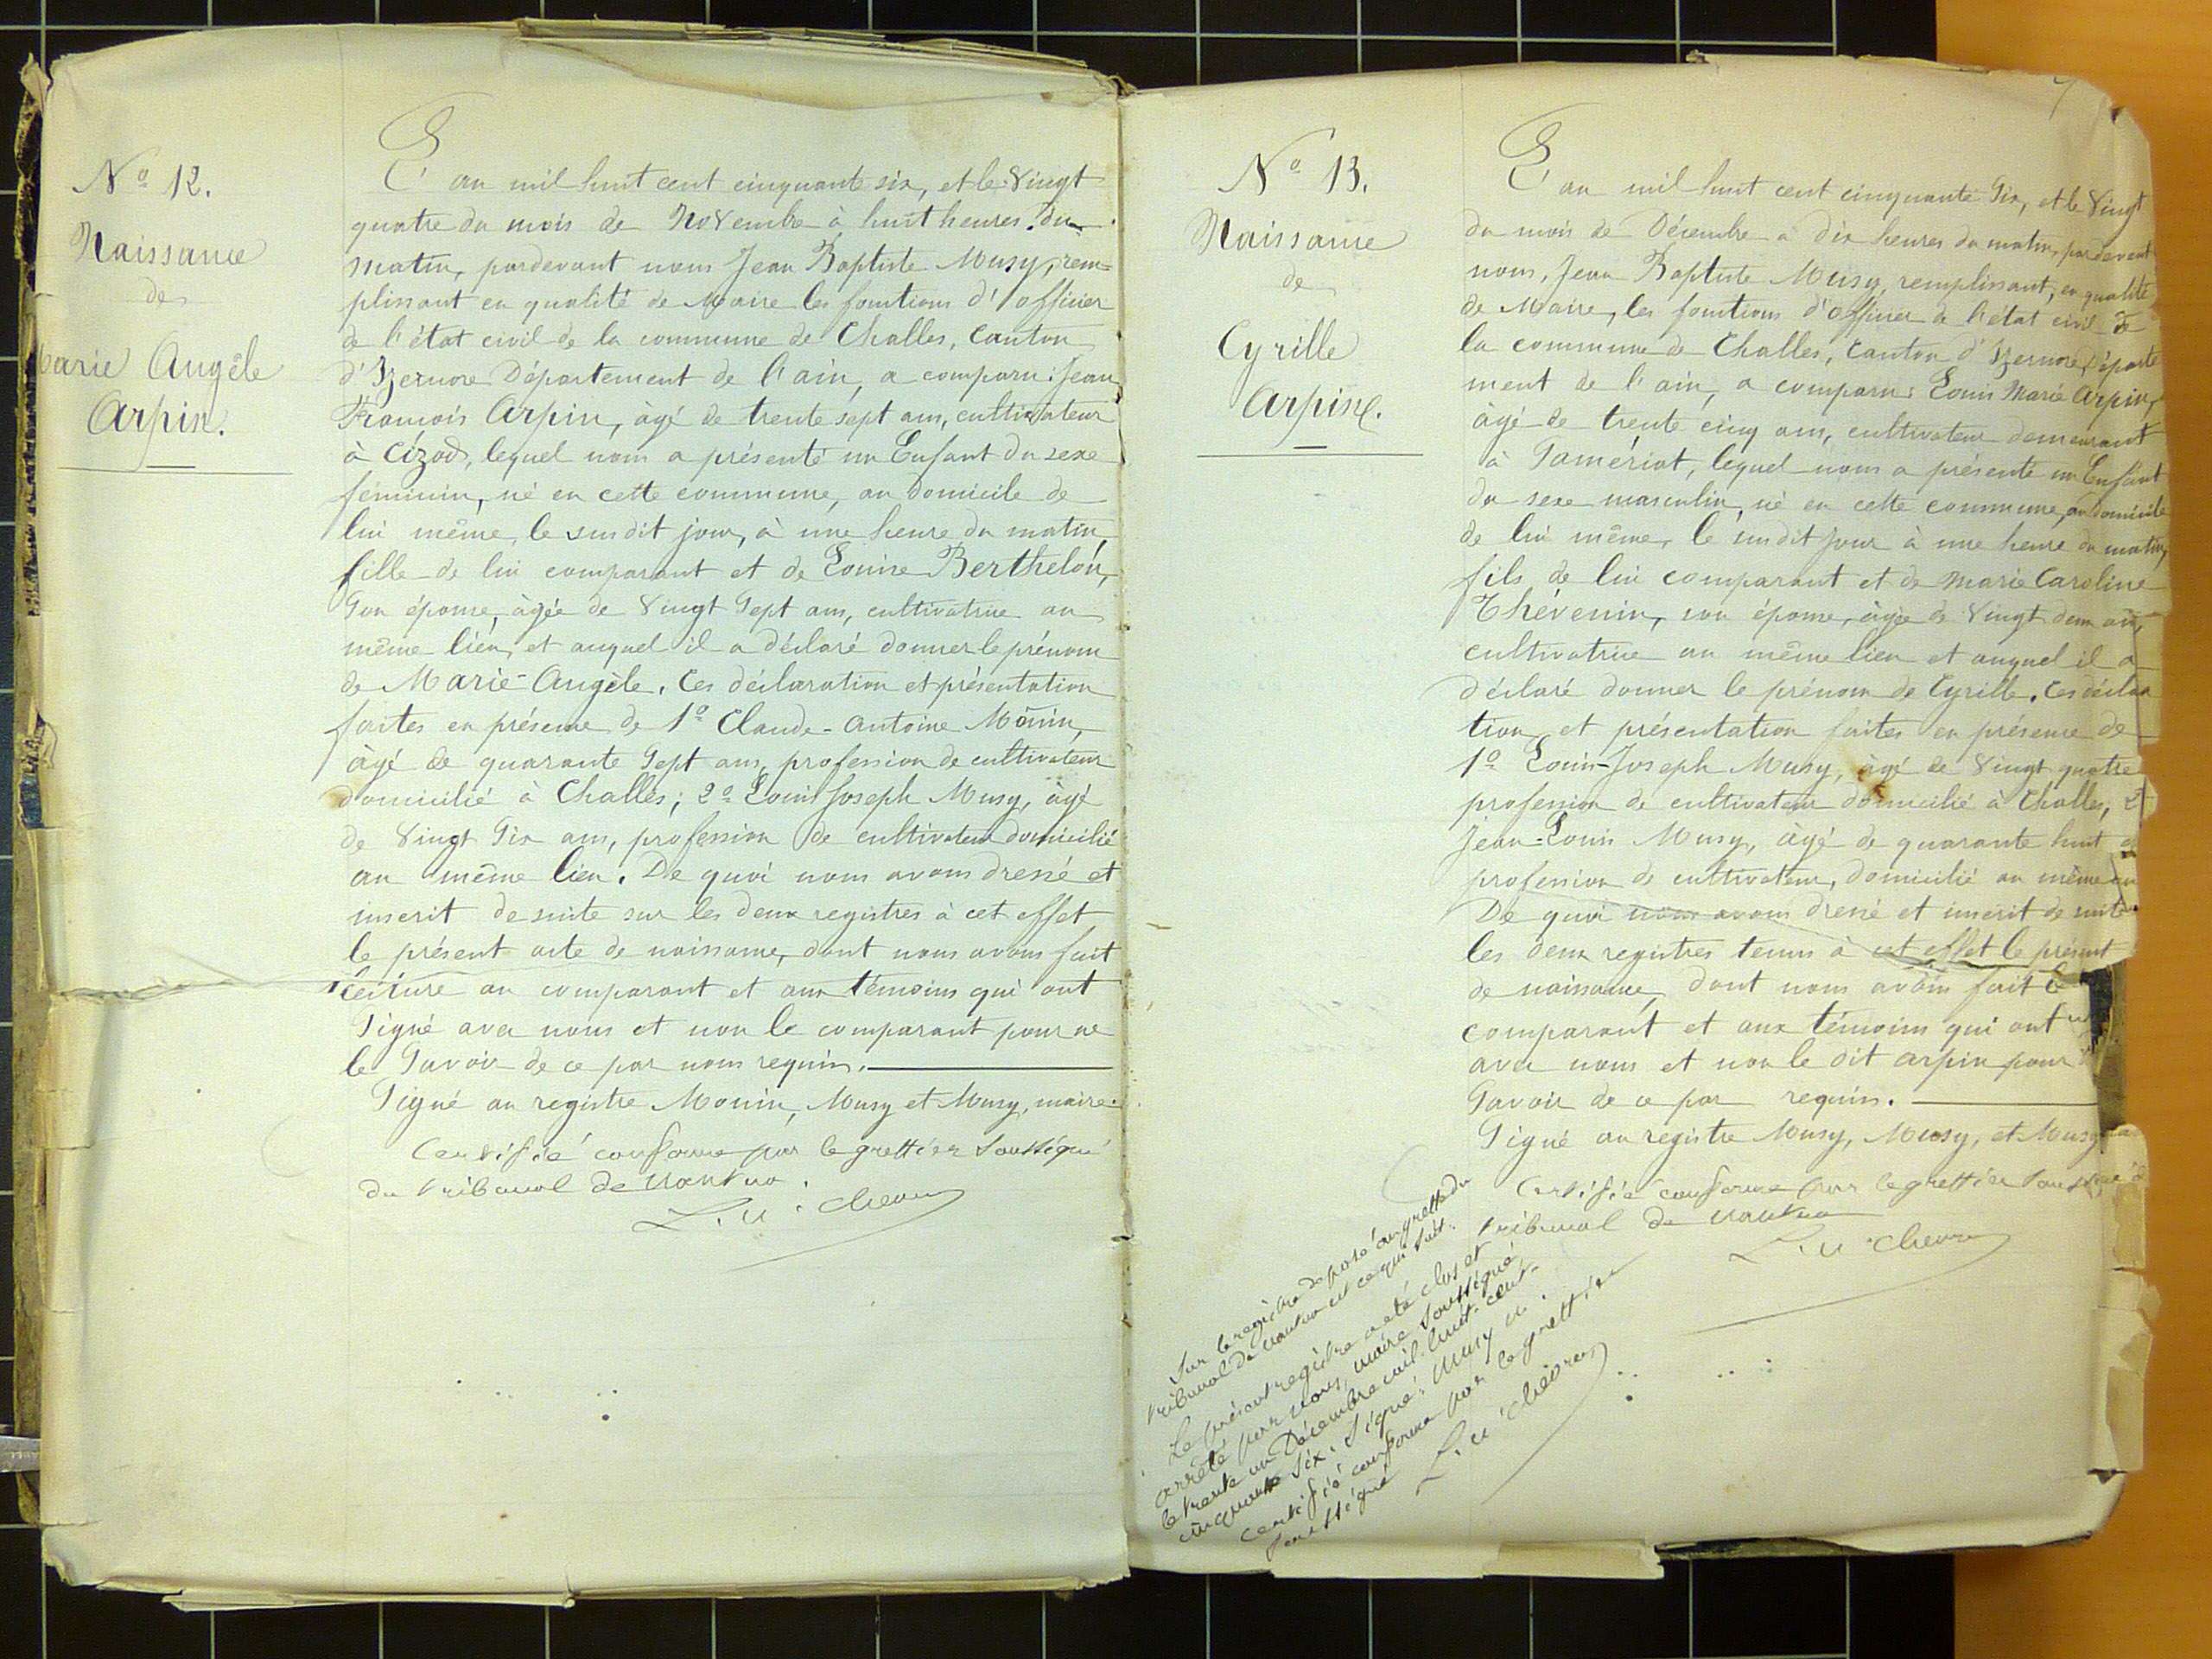 No 12.
Naissance
de
Marie Angèle
Arpin.
L'an mil huit cent cinquante six, et le Vingt
quatre du mois de Novembre à huit heures du
matin, pardevant nous Jean Baptiste Musy, rem=
plissant en qualité de Maire les fonctions d'officier
de l'état civil de la commune de Challes, Canton
d'Izernore Département de l'ain, a comparu: Jean
François Arpin, âgé de trente sept ans, cultivateur
à Cizod, lequel nous a présenté un Enfant du sexe
féminin, né en cette commune, au domicile de
lui même, le susdit jour, à une heure du matin,
fille de lui comparant et de Louise Berthelon,
Son épouse, âgée de Vingt Sept ans, cultivatrice au
même lieu, et auquel il a déclaré donner le prénom
de Marie-Angèle. Ces déclaration et présentation
faites en présence de 1o Claude-Antoine Monin,
âgé de quarante Sept ans, profession de cultivateur
domicilié à Challes; 2o Louis Joseph Musy, âgé
de Vingt Six ans, profession de cultivateur domicilié
au même lieu. De quoi nous avons dressé et
inscrit de suite sur les deux registres à cet effet
le présent acte de naissance, dont nous avons fait
lecture au comparant et aux témoins qui ont
Signé avec nous et non le comparant pour ne
le Savoir de ce par nous requis.
Signé au registre Monin, Musy et Musy, maire.
Certifié conforme par le greffier soussigné
du tribunal de Nantua.
7
No 13.
Naissance
de
Cyrille
Arpin.
L'an mil huit cent cinquante Six, et le Vingt
du mois de Décembre à dix heures du matin, pardevant
nous, Jean Baptiste Musy, remplissant, en qualité
de Maire, les fonctions d'officier de l'état civil de
la commune de Challes, Canton d'Izernore Départe
ment de l'ain, a comparu: Louis Marie Arpin,
âgé de trente cinq ans, cultivateur demeurant
à Tamériat, lequel nous a présenté un Enfant
du sexe masculin, né en cette commune, au domicile
de lui même, le susdit jour à une heure du matin,
fils de lui comparant et de Marie Caroline
Thévenin, son épouse, âgée de Vingt deux ans,
cultivatrice au même lieu et auquel il a
déclaré donner le prénom de Cyrille. Ces déclara
tion et présentation faites en présence de
1o Louis-Joseph Musy, âgé de Vingt quatre
profession de cultivateur domicilié à Challes, 2o
Jean-Louis Musy, âgé de quarante huit
profession de cultivateur, domicilié au même
De quoi nous avons dressé et inscrit de suite
les deux registres tenus à cet effet le présent
de naissance, dont nous avons fait
comparant et aux témoins qui ont
avec nous et non le dit Arpin pour
Savoir de ce par requis.
Signé au registre Musy, Musy, et Musy
Certifié conforme par le greffier soussigné
tribunal de Nantua
Sur le registre déposé au greffe du
tribunal de Nantua est ce qui suit.
Le présent registre a été clos et
arrêté par nous, maire soussigné
le trente un Décembre mil huit cent
cinquante six. Signé: Musy
Certifié conforme par le greffier
soussigné